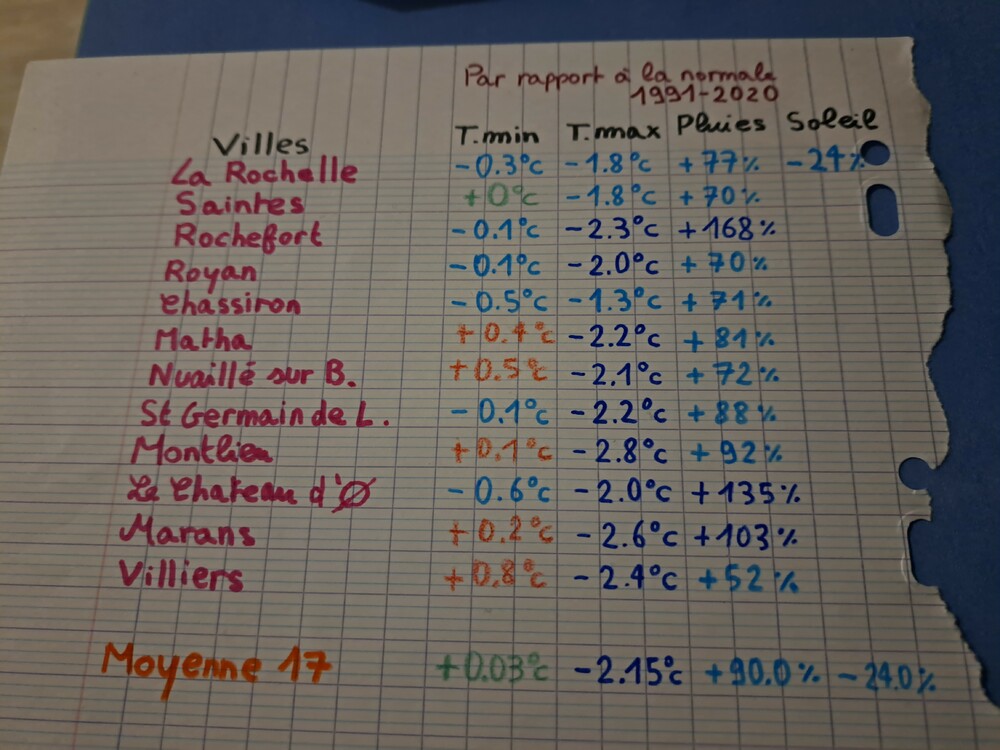 Par rapport à la normale
1991-2020
Villes T.min T.max Pluies Soleil
La Rochelle -0.3°c -1.8°c +77% -24%
Saintes +0°c -1.8°c +70%
Rochefort -0.1°c -2.3°c +168%
Royan -0.1°c -2.0°c +70%
Chassiron -0.5°c -1.3°c +71%
Matha +0.4°c -2.2°c +81%
Nuaillé sur B. +0.5°c -2.1°c +72%
St Germain de L. -0.1°c -2.2°c +88%
Montlieu +0.1°c -2.8°c +92%
Le Chateau d'Ø -0.6°c -2.0°c +135%
Marans +0.2°c -2.6°c +103%
Villiers +0.8°c -2.4°c +52%
Moyenne 17 +0.03°c -2.15°c +90.0% -24.0%